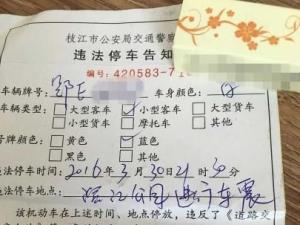 枝江市公安局交通警察
违法停车告知
编号：420583-7
车辆牌号：鄂E 车身颜色：白
车辆类型： 大型客车 小型客车 大型货车
小型货车 摩托车 其他
号牌颜色： 黄色 蓝色
黑色 其他
违法停车时间：2016年3月30日21时30分
违法停车地点：滨江公园 进行车震
该机动车在上述时间、地点停放，违反了《道路交